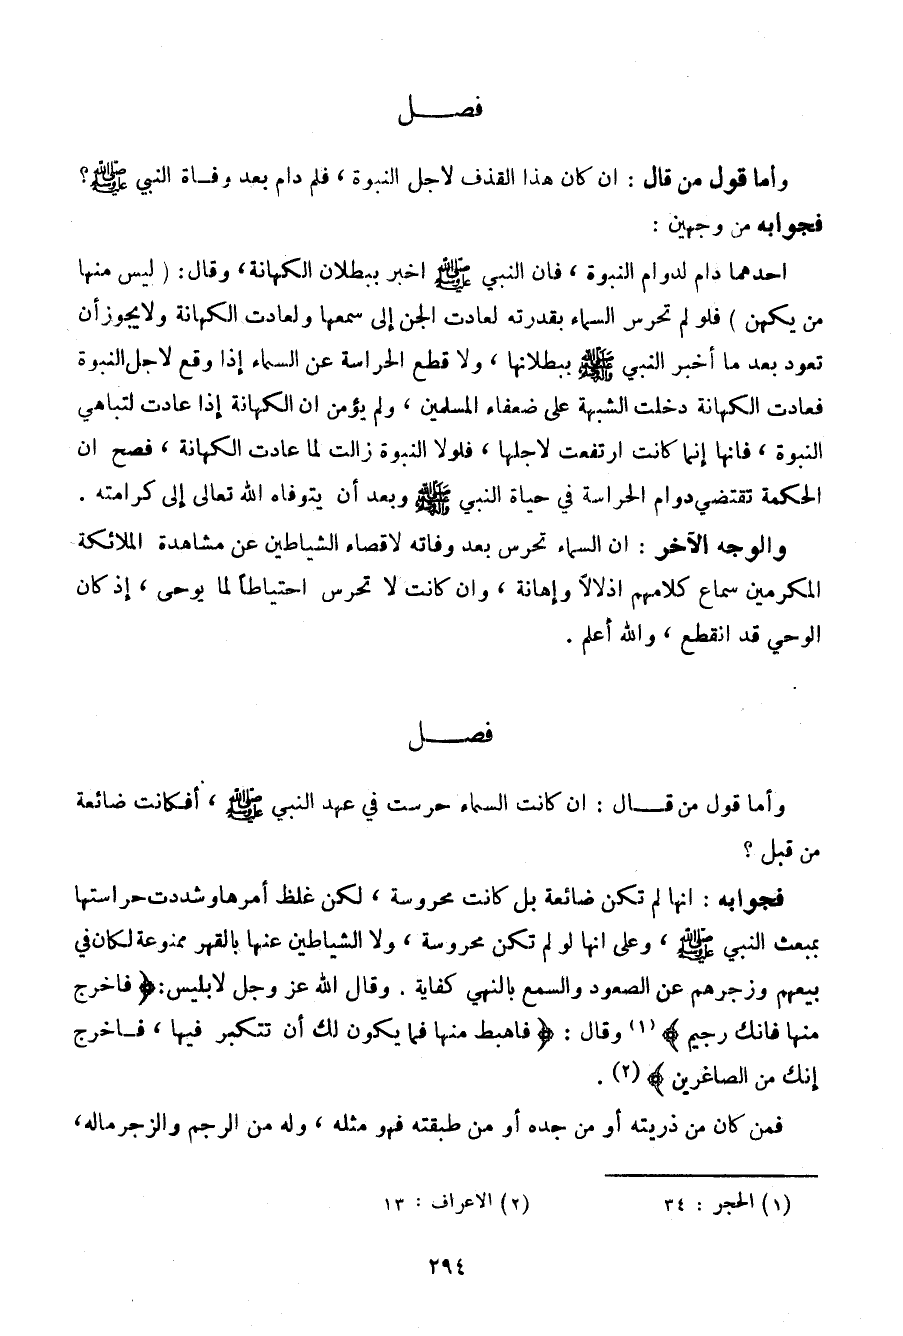 فصـــــل
وأما قول من قال : ان كان هذا القذف لاجل النبوة ، فلم دام بعد وفـاة النبي ﷺ؟
فجوابه من وجهين :
احدهما دام لدوام النبوة ، فان النبي ﷺ اخبر ببطلان الكهانة، وقال: ( ليس منها
من يكهن ) فلو لم تحرس السماء بقدرته لعادت الجن إلى سمعها ولعادت الكهانة ولايجوزأن
تعود بعد ما أخبر النبي ﷺ ببطلانها ، ولا قطع الحراسة عن السماء إذا وقع لاجل النبوة
فعادت الكهانة دخلت الشبهة على ضعفاء المسلمين ، ولم يؤمن ان الكهانة إذا عادت لتباهي
النبوة ، فانها إنما كانت ارتفعت لاجلها ، فلولا النبوة زالت لما عادت الكهانة ، فصح ان
الحكمة تقتضي دوام الحراسة في حياة النبي ﷺ وبعد أن يتوفاه الله تعالى إلى كرامته .
والوجه الآخر : ان السماء تحرس بعد وفاته لاقصاء الشياطين عن مشاهدة الملائكة
المكرمين سماع كلامهم اذلالاً وإهانة ، وان كانت لا تحرس احتياطاً لما يوحى ، إذ كان
الوحي قد انقطع ، والله أعلم .
فصـــــل
وأما قول من قـــال : ان كانت السماء حرست في عهد النبي ﷺ ، أفـكانت ضائعة
من قبل ؟
فجوابه : انها لم تكن ضائعة بل كانت محروسة ، لكن غلظ أمرها وشددت حراستها
بمبعث النبي ﷺ ، وعلى انها لو لم تكن محروسة ، ولا الشياطين عنها بالقهر ممنوعة لكان في
بيعهم وزجرهم عن الصعود والسمع بالنهي كفاية . وقال الله عز وجل لابليس: ﴿ فاخرج
منها فانك رجيم ﴾ (١) وقال : ﴿ فاهبط منها فما يكون لك أن تتكبر فيها ، فـاخرج
إنك من الصاغرين ﴾ (٢) .
فمن كان من ذريته أو من جده أو من طبقته فهو مثله ، وله من الرجم والزجر ماله،
(١) الحجر : ٣٤ (٢) الاعراف : ١٣
٢٩٤